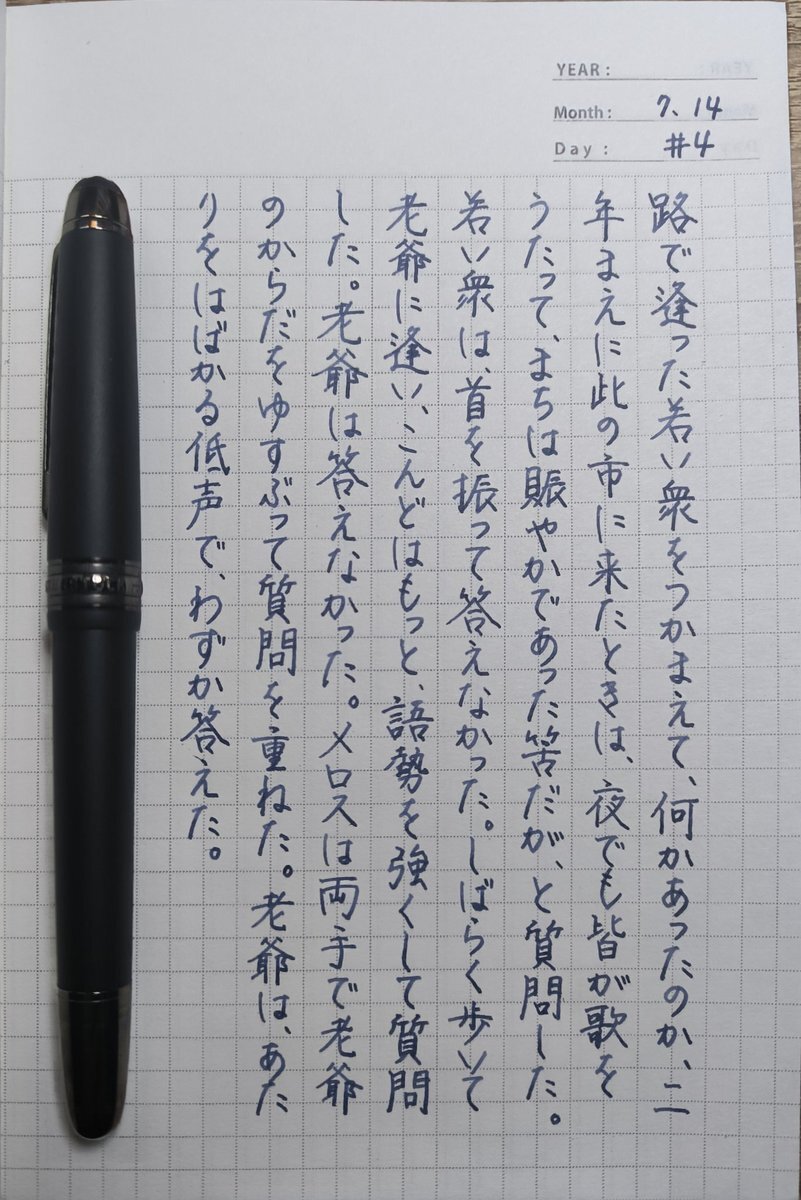 YEAR :
Month : 7、14
Day : #4
路で逢った若い衆をつかまえて、何かあったのか、二
年まえに此の市に来たときは、夜でも皆が歌を
うたって、まちは賑やかであった筈だが、と質問した。
若い衆は、首を振って答えなかった。しばらく歩いて
老爺に逢い、こんどはもっと、語勢を強くして質問
した。老爺は答えなかった。メロスは両手で老爺
のからだをゆすぶって質問を重ねた。老爺は、あた
りをはばかる低声で、わずか答えた。